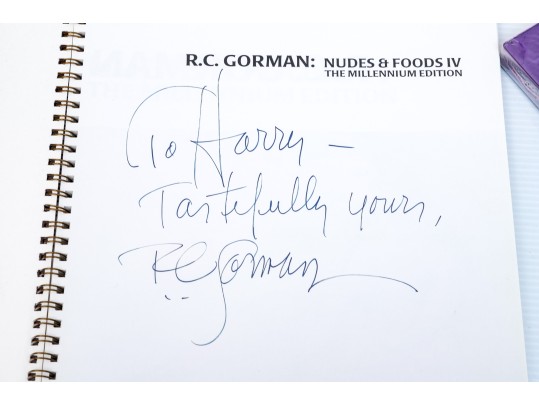 R.C. GORMAN: NUDES & FOODS IV
THE MILLENNIUM EDITION
To Harry –
Tastefully yours,
R.C. Gorman